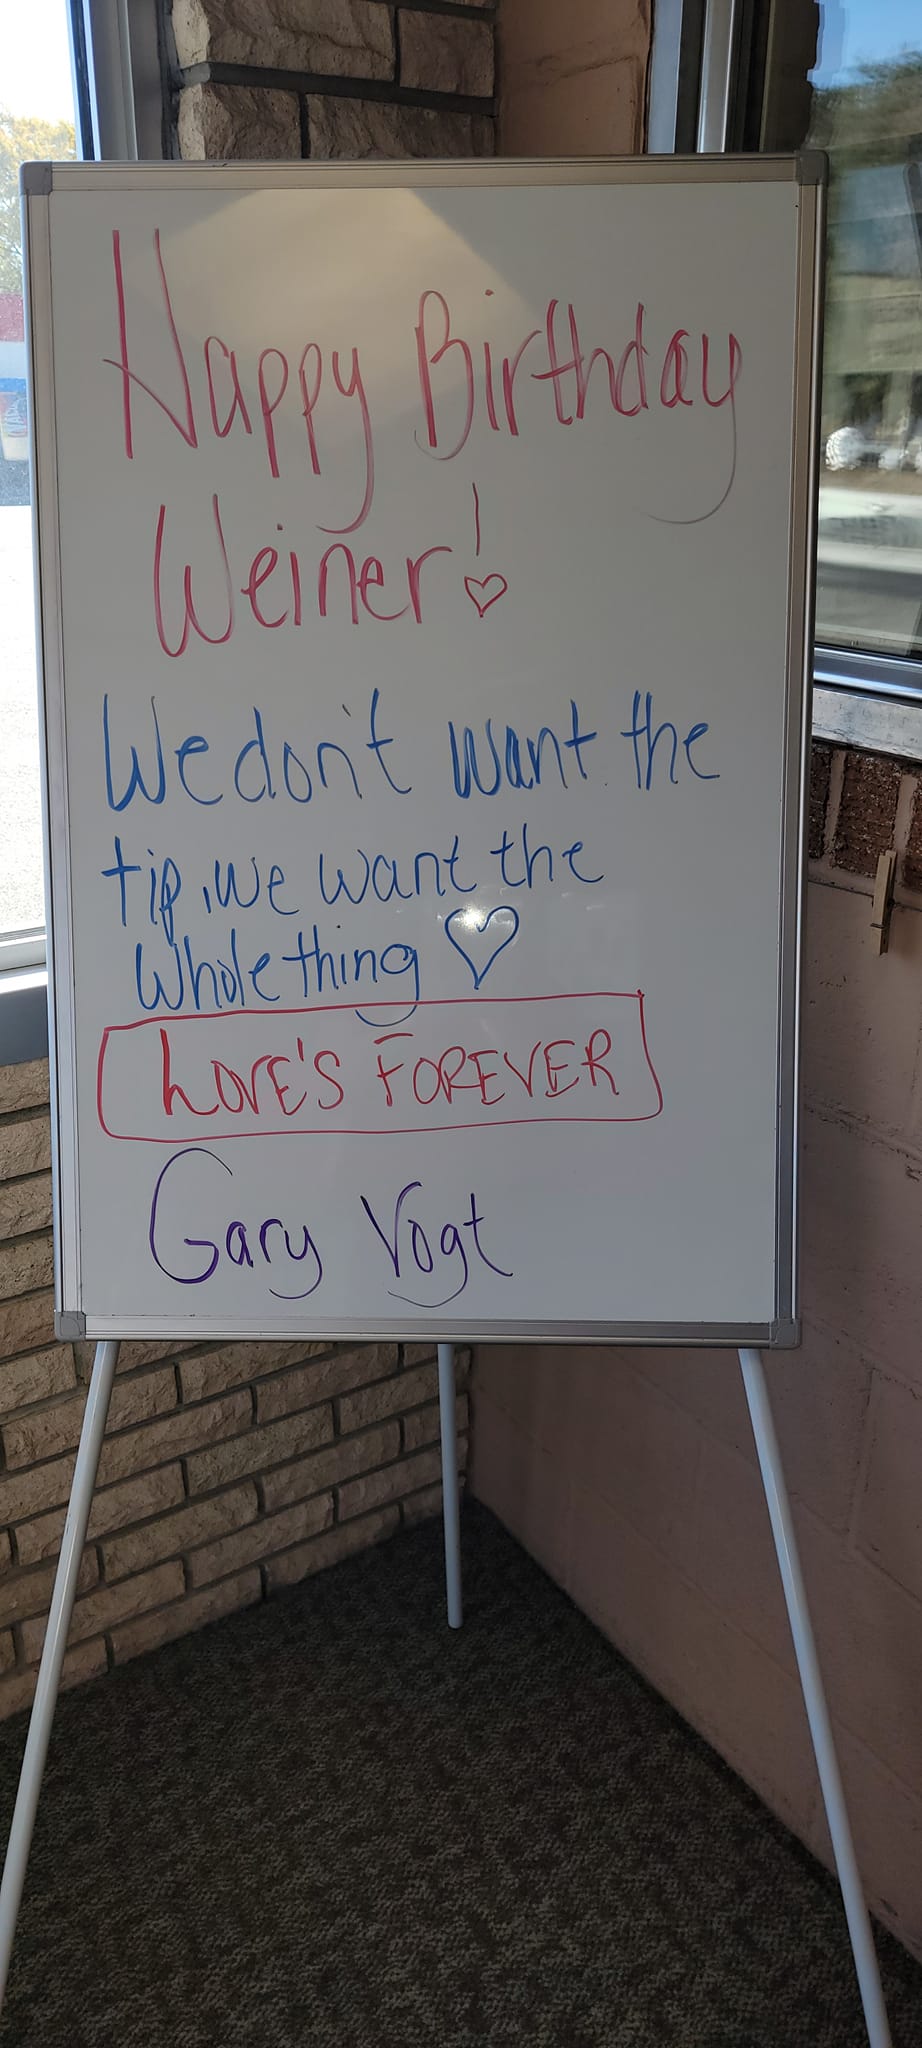 Happy Birthday
Weiner!
We don't want the
tip, we want the
whole thing
LOVE'S FOREVER
Gary Vogt